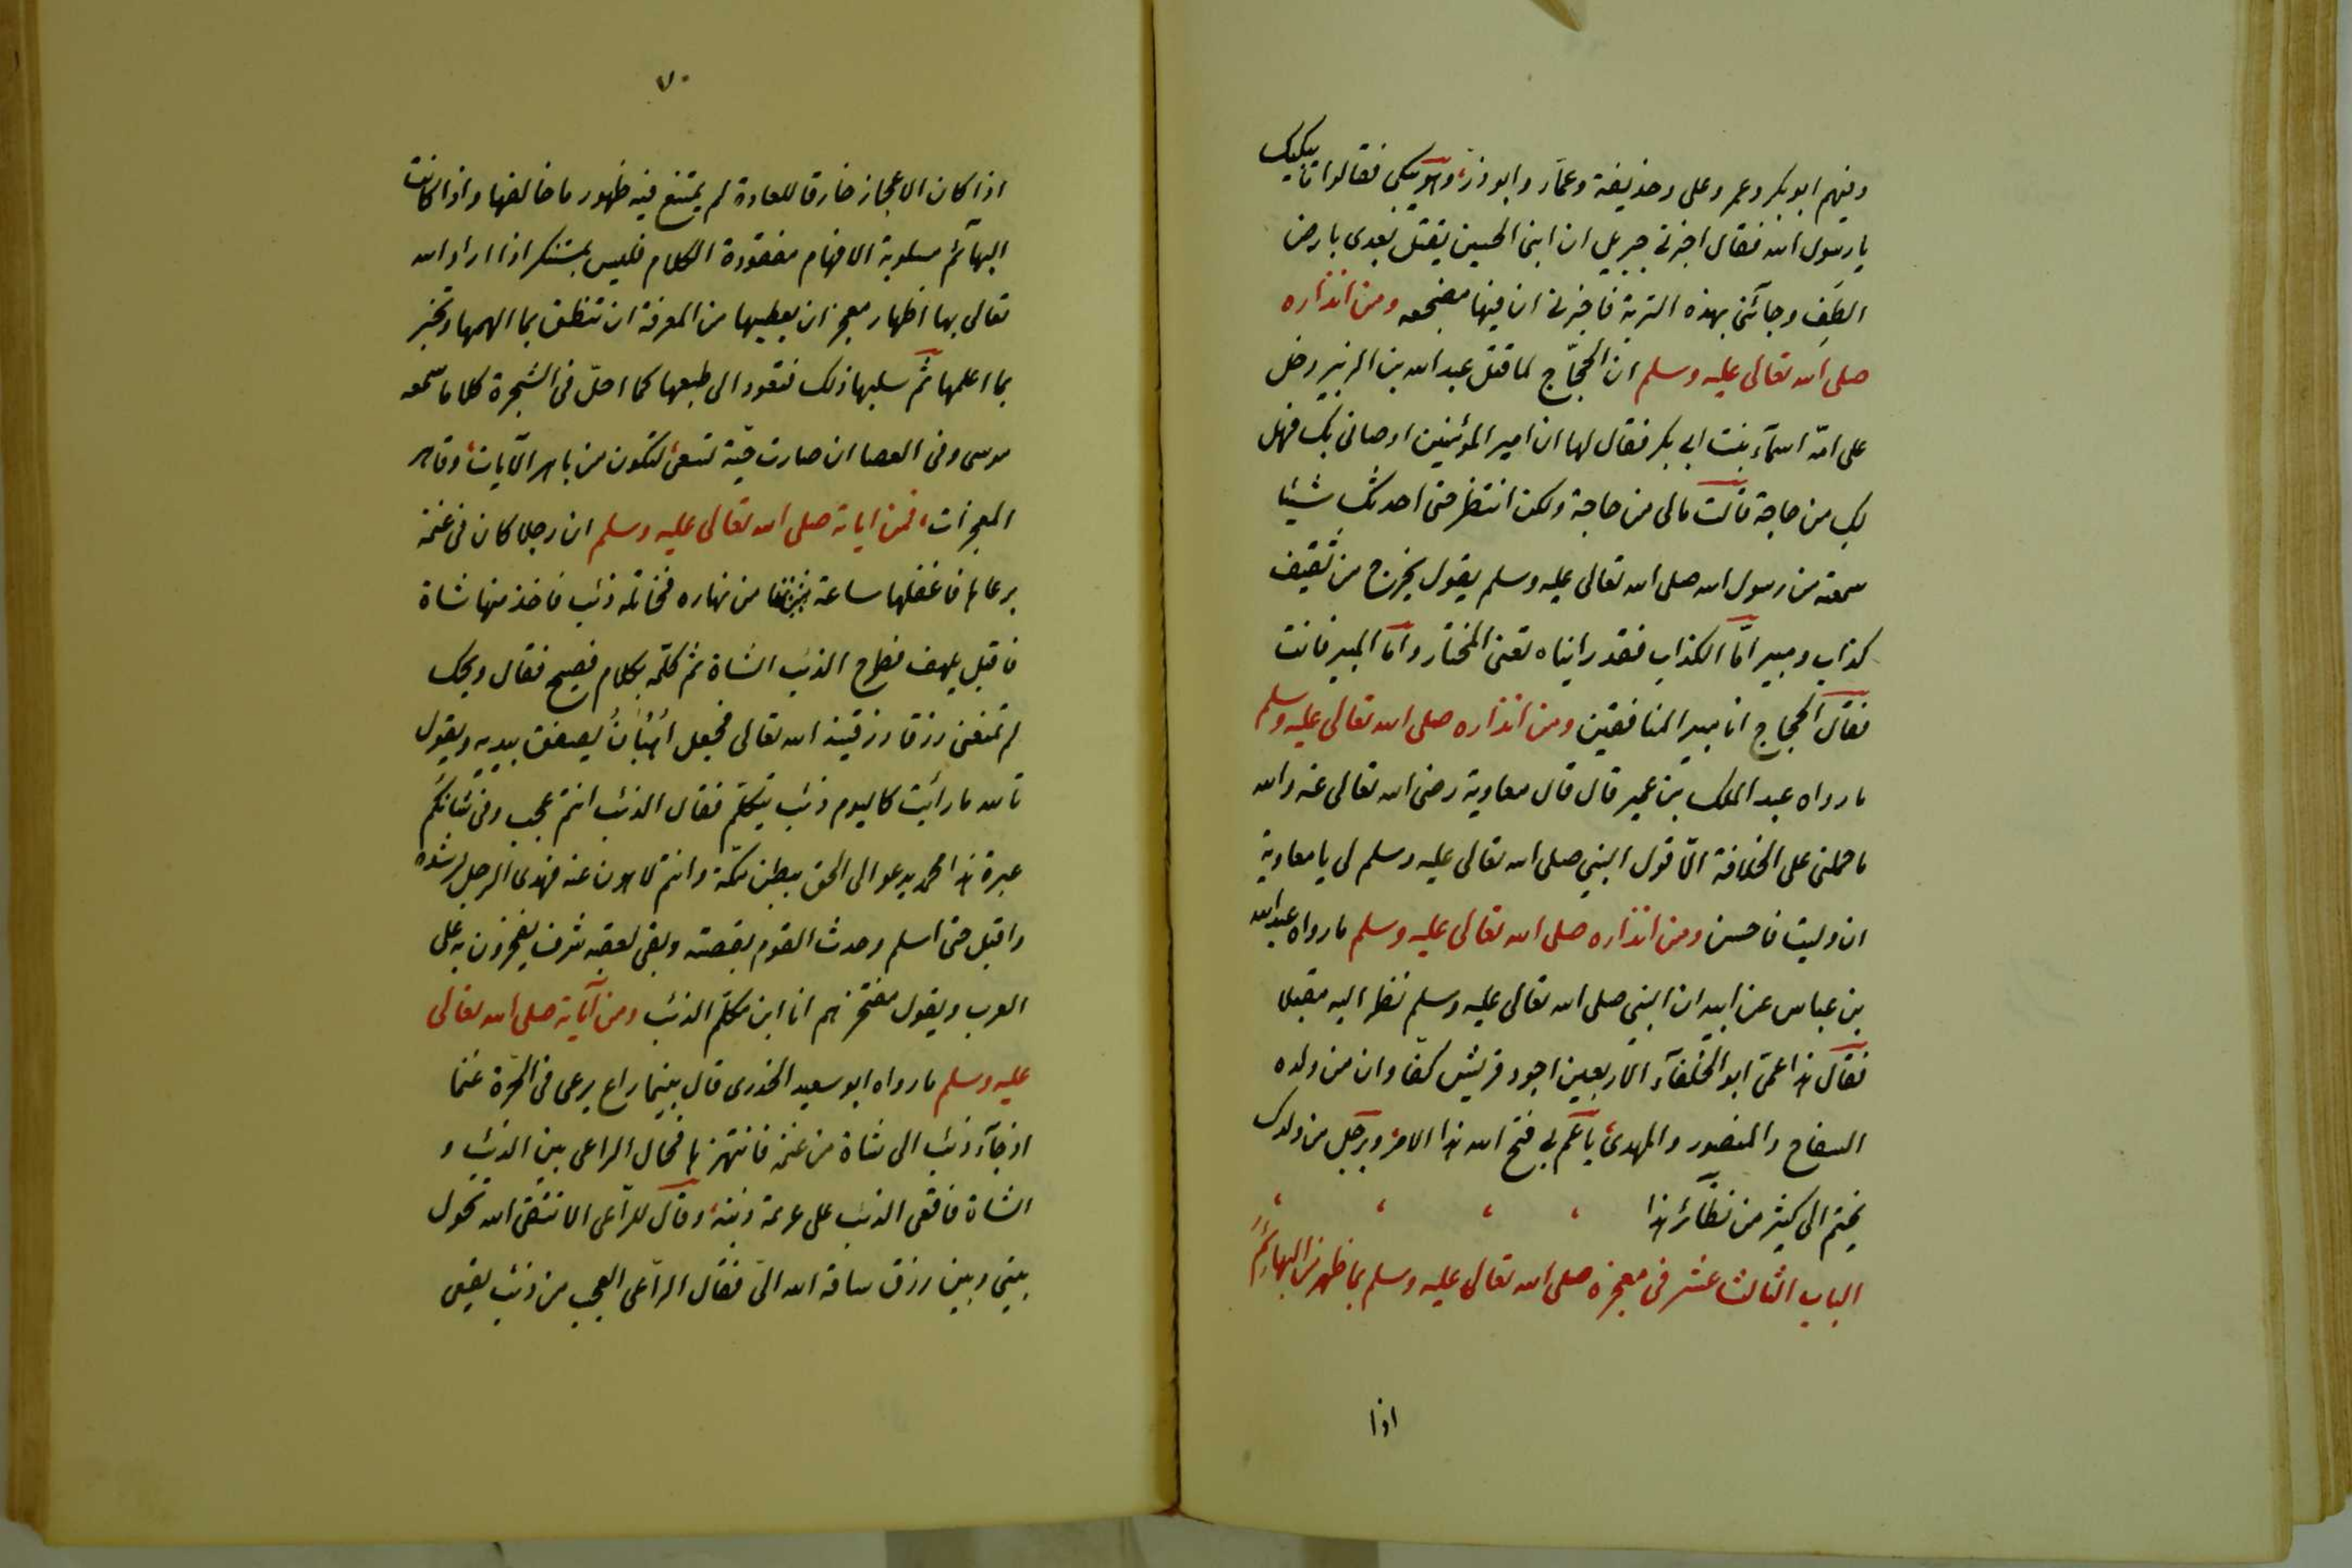 وفيهم ابو بكر وعمر وعلى وحذيفة وعمّار وابو ذر وهو يبكى فقالوا ما يبكيك
يا رسول الله فقال اخبرنى جبريل ان ابنى الحسين يقتل بعدى بارض
الطف وجاءنى بهذه التربة فاخبرنى ان فيها مضجعه ومن انذاره
صلى الله تعالى عليه وسلم ان الحجّاج لما قتل عبد الله بن الزبير دخل
على امّه اسمآء بنت ابى بكر فقال لها ان امير المؤمنين اوصانى بك فهل
لك من حاجة قالت مالى من حاجة ولكن انتظر حتى احدثك شيئا
سمعته من رسول الله صلى الله تعالى عليه وسلم يقول يخرج من ثقيف
كذاب ومبير امّا الكذاب فقد رايناه تعنى المختار واما المبير فانت
فقال الحجاج انا مبير المنافقين ومن انذاره صلى الله تعالى عليه وسلم
ما رواه عبد الملك بن عمير قال قال معاوية رضى الله تعالى عنه والله
ما حملنى على الخلافة الّا قول النبى صلى الله تعالى عليه وسلم لى يا معاوية
ان وليت فاحسن ومن انذاره صلى الله تعالى عليه وسلم ما رواه عبد الله
بن عباس عن ابيه ان النبى صلى الله تعالى عليه وسلم نظر اليه مقبلا
فقال هذا عمّى ابو الخلفآء الاربعين اجود قريش كفّا وان من ولده
السفاح والمنصور والمهدى يا عم بى فتح الله هذا الامر وبرجل من ولدك
يختم الى كثير من نظائر هذا
الباب الثالث عشر فى معجزه صلى الله تعالى عليه وسلم بما ظهر من البهائم
اذا
٧٠
اذا كان الاعجاز خارقا للعادة لم يمتنع فيه ظهور ما خالفها واذا كانت
البهآئم مسلوبة الافهام مفقودة الكلام فليس بمستنكر اذا اراد الله
تعالى بها اظهار معجز ان يعطيها من المعرفة ان تنطق بما الهمها وتخبر
بما اعلمها ثم سلبها ذلك فتعود الى طبعها كما احلّ فى الشجرة كلاما سمعه
موسى وفى العصا ان صارت حيّة تسعى لتكون من باهر الآيات وقاهر
المعجزات فمن اياته صلى الله تعالى عليه وسلم ان رجلا كان فى غنمه
يرعاها فاغفلها ساعة من نهاره فخاتله ذئب فاخذ منها شاة
فاقبل يلهف فطرح الذئب الشاة ثم كلّمه بكلام فصيح فقال ويحك
لم تمنعنى رزقا رزقنيه الله تعالى فجعل اهبان يصفق بيديه ويقول
تالله ما رايت كاليوم ذئب يتكلّم فقال الذئب انتم عجب وفى شانكم
عبرة هذا محمد يدعو الى الحق ببطن مكّة وانتم لاهون عنه فهدى الرجل لرشده
واقبل حتى اسلم وحدث القوم بقصته وبقى لعقبه شرف يفخرون به على
العرب ويقول مفتخرهم انا ابن مكلّم الذئب ومن آياته صلى الله تعالى
عليه وسلم ما رواه ابو سعيد الخدرى قال بينما راع يرعى فى الحرّة غنما
اذ جآء ذئب الى شاة من غنمه فانتهزها فحال الراعى بين الذئب و
الشاة فاقعى الذئب على ذنبه وقال للراعى الا تتقى الله تحول
بينى وبين رزق ساقه الله الىّ فقال الراعى العجب من ذئب يقعى